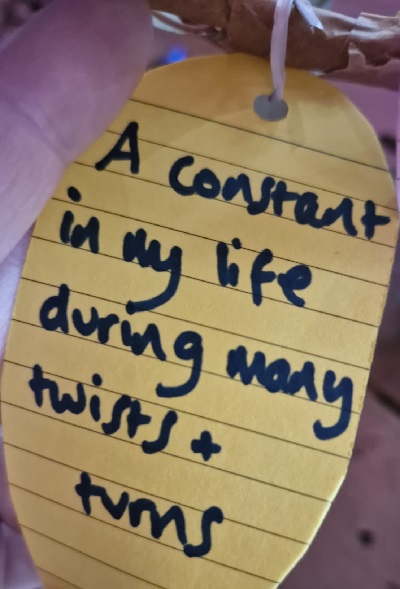 A constant
in my life
during many
twists +
turns